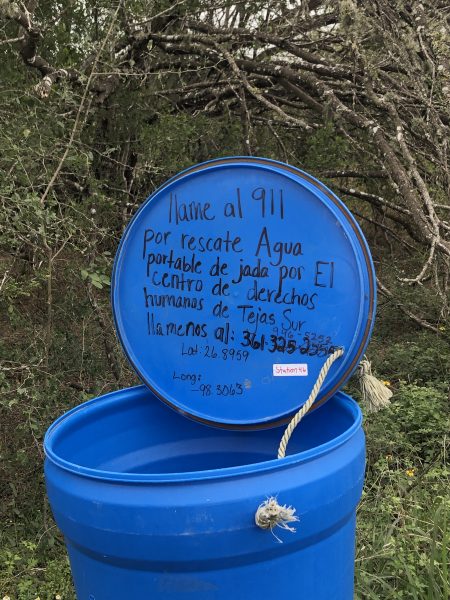 llame al 911
por rescate Agua
portable de jada por El
centro de derechos
humanos de Tejas Sur
llamenos al: 361-325-
Lat: 26.8959
Station 46
Long:
-98.3063